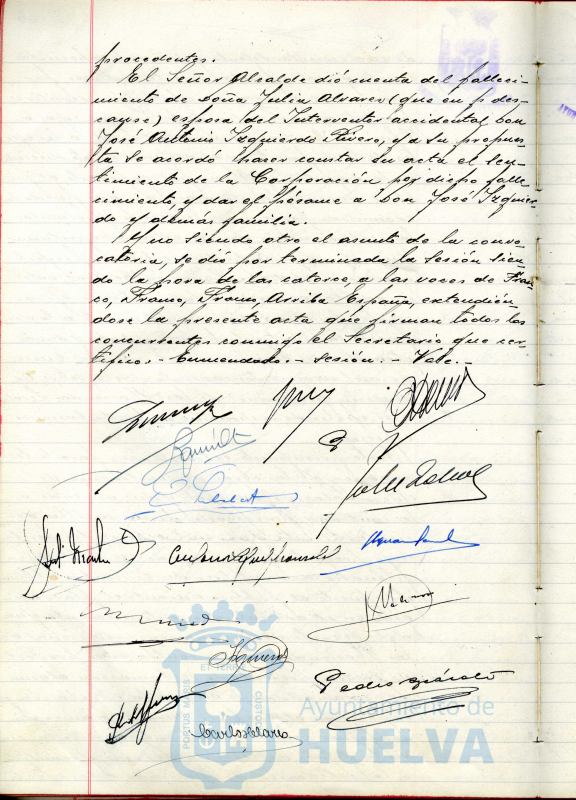 procedentes.
El Señor Alcalde dió cuenta del falleci-
miento de Doña Julia Alvarez (que en p. des-
canse) esposa del Interventor accidental Don
José Antonio Izquierdo Rivero, y a su propues-
ta se acordó hacer constar en acta el sen-
timiento de la Corporación, por dicho falle-
cimiento, y dar el pésame a Don José Izquier-
do y demás familia.
Y no siendo otro el asunto de la convo-
catoria, se dió por terminada la sesión sien-
do la hora de las catorce, a las voces de Fran-
co, Franco, Franco, Arriba España, extendién-
dose la presente acta que firman todos los
concurrentes conmigo el Secretario que cer-
tifico.- Enmendado.- sesión.- Vale.-
Pedro
Carlos
PORTUS MARIS
CUSTODIA
Ayuntamiento de
HUELVA